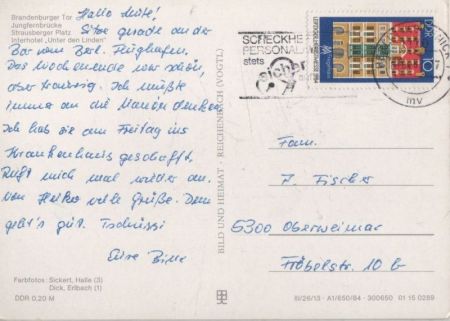 Brandenburger Tor
Jungfernbrücke
Strausberger Platz
Interhotel „Unter den Linden"
Hallo Leute!
Sitze gerade an der
Bar vom Berl. Flughafen.
Das Wochenende war schön,
aber traurig. Ich mußte
immer an die denken.
Ich hab sie am Freitag ins
Krankenhaus geschafft.
Ruft mich mal wieder an.
Von Heiko viele Grüße. Dem
geht's gut. Tschüssi
Eure
Farbfotos: Sickert, Halle (3)
Dick, Erlbach (1)
DDR 0,20 M
BILD UND HEIMAT · REICHENBACH (VOGTL)
SCHECKHE
PERSONAL
stets
sicher
DDR
10
mv
Fam.
J. Fischer
5300 Oberweimar
Fröbelstr. 10 b
III/26/13 · A1/650/84 · 300650 01 15 0289